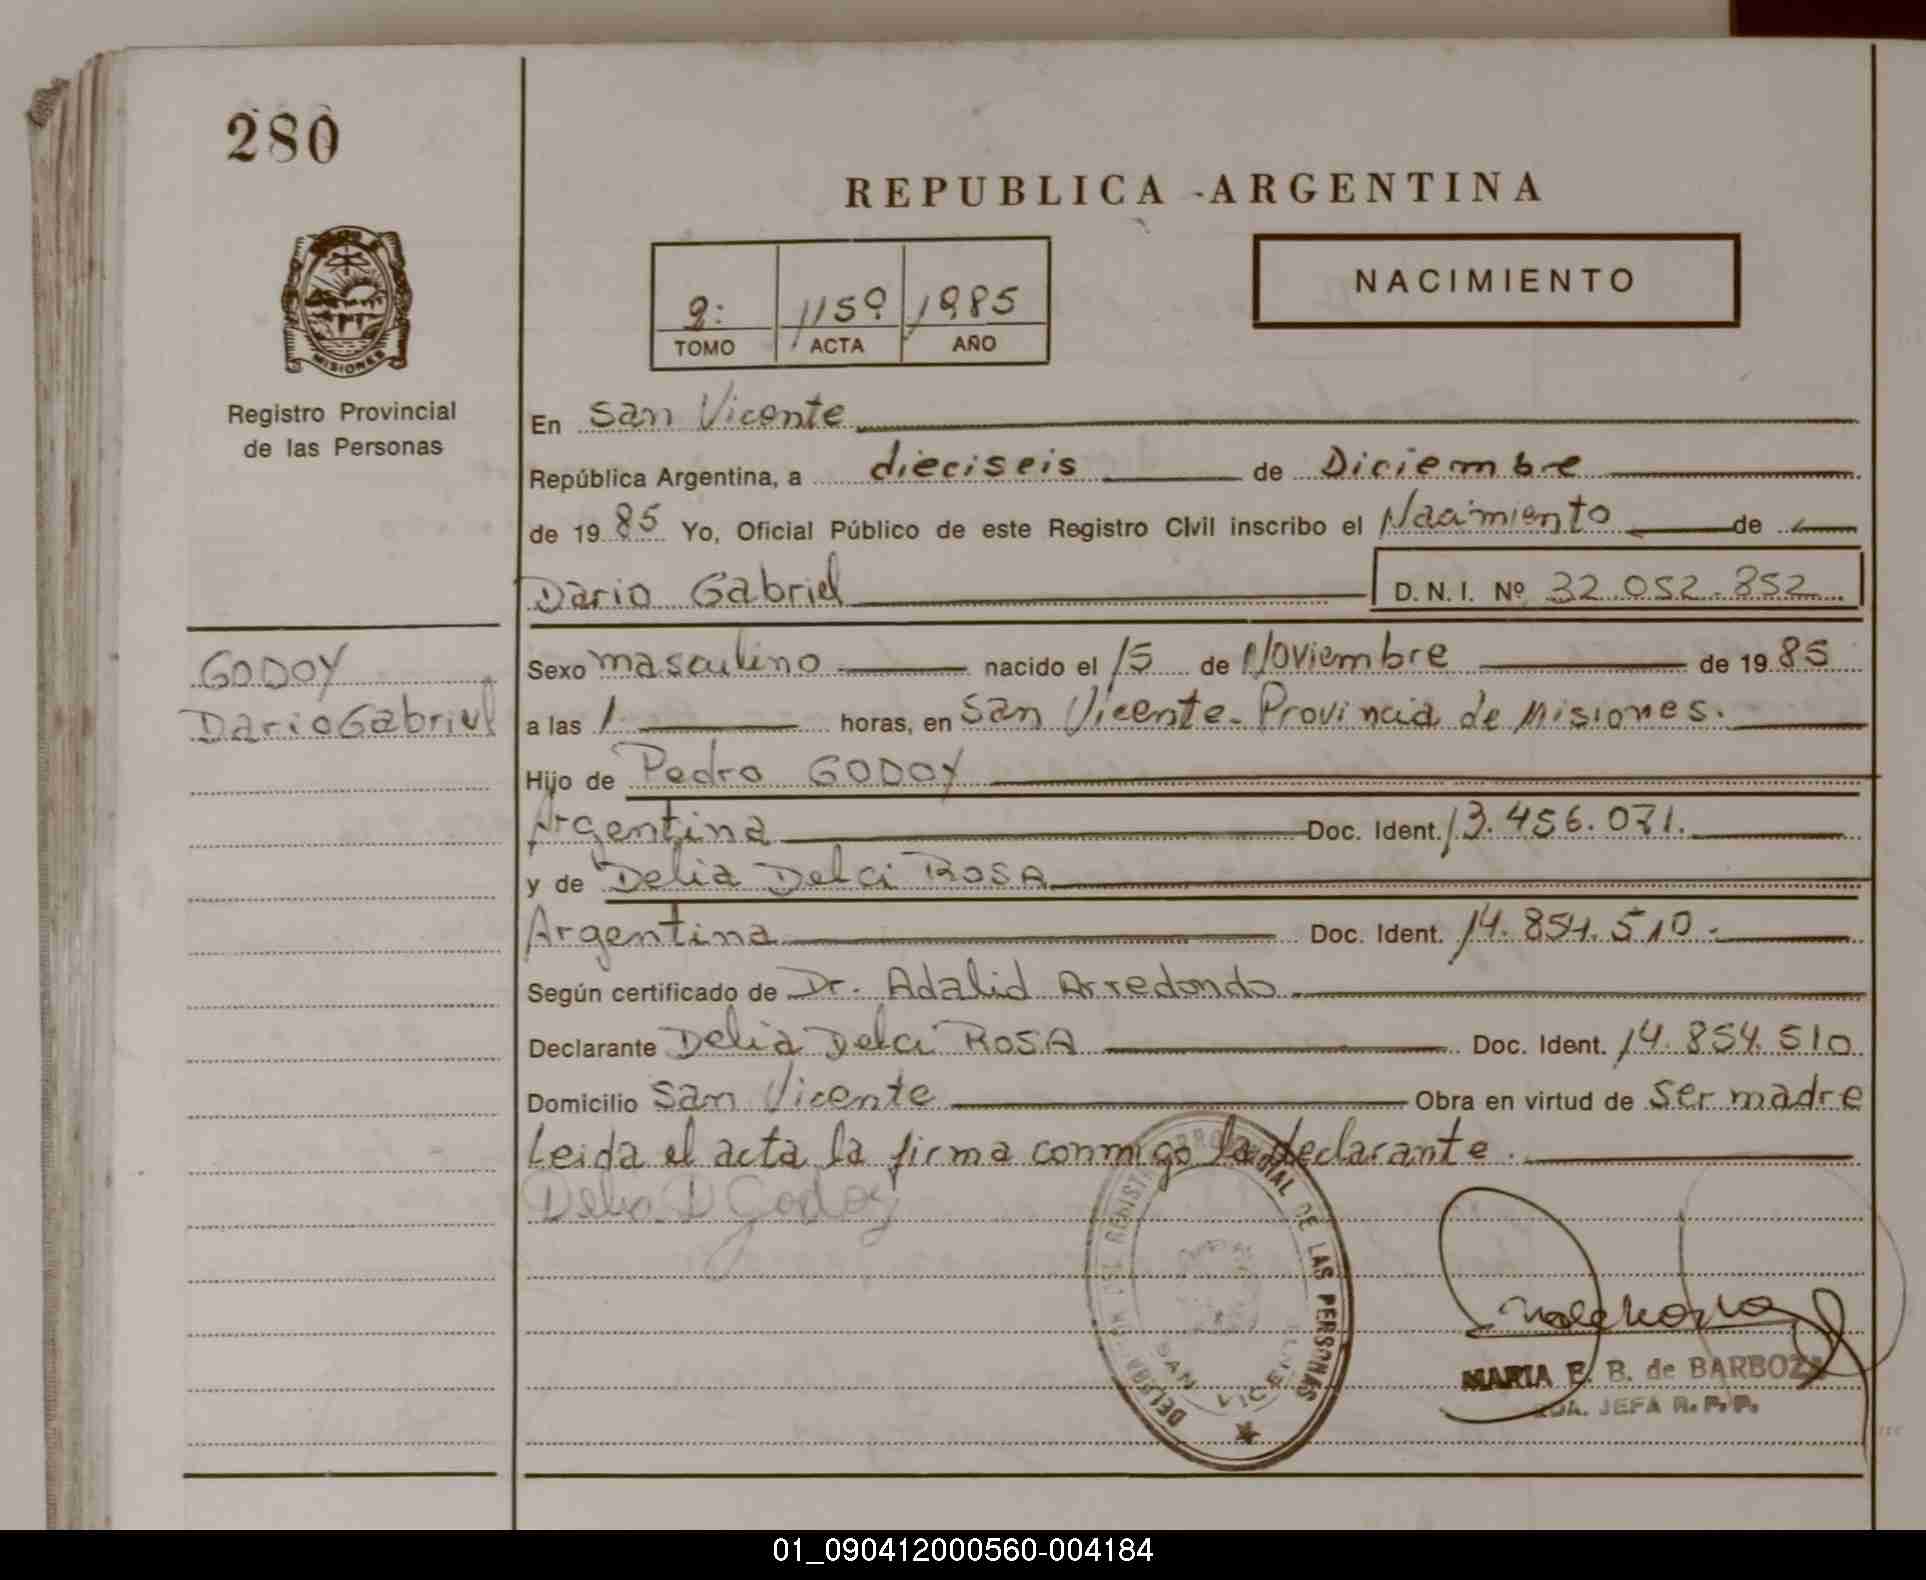 280
REPUBLICA ARGENTINA
NACIMIENTO
2: 1159 1985
TOMO ACTA AÑO
MISIONES
Registro Provincial
de las Personas
En San Vicente
República Argentina, a dieciseis de Diciembre
de 1985 Yo, Oficial Público de este Registro Civil inscribo el Nacimiento de
Dario Gabriel D. N. I. Nº 32.052.852
GODOY
Dario Gabriel
Sexo masculino nacido el 15 de Noviembre de 1985
a las 1 horas, en San Vicente - Provincia de Misiones.
Hijo de Pedro GODOY
Argentina Doc. Ident. 13.456.071.
y de Delia Delci ROSA
Argentina Doc. Ident. 14.854.510.-
Según certificado de Dr. Adalid Arredondo
Declarante Delia Delci ROSA Doc. Ident. 14.854.510
Domicilio San Vicente Obra en virtud de ser madre
Leida el acta la firma conmigo la declarante.
Delia D Godoy
DEL REGISTRO PROVINCIAL DE LAS PERSONAS
SAN VICENTE
MARIA E. B. de BARBOZA
JEFA R. P. P.
01_090412000560-004184